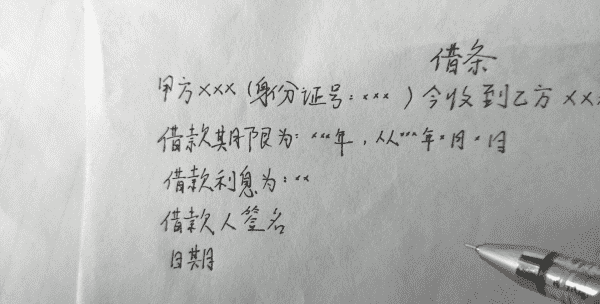 借条
甲方×××(身份证号：×××)今收到乙方××
借款期限为：×××年，从×××年×月×日
借款利息为：××
借款人签名
日期